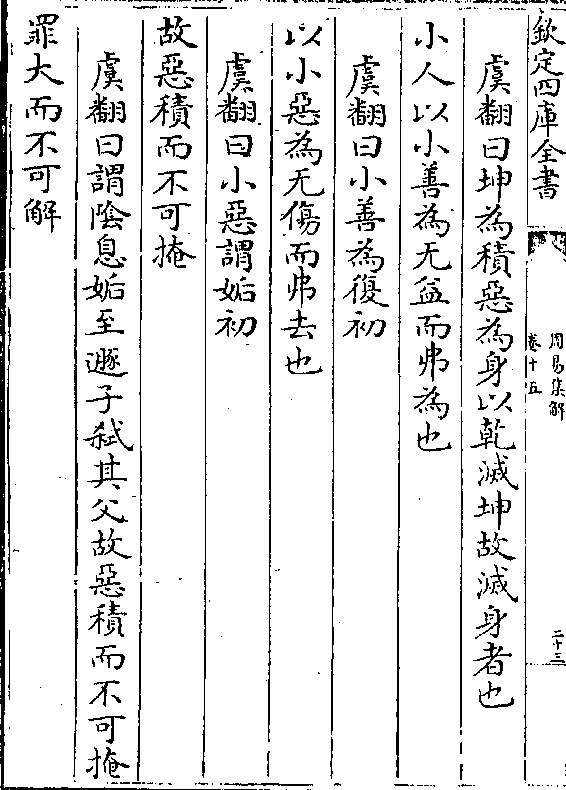 欽定四庫全書
周易集解
卷十五
二十三
虞翻曰坤為積惡為身以乾滅坤故滅身者也
小人以小善為无益而弗為也
虞翻曰小善為復初
以小惡為无傷而弗去也
虞翻曰小惡謂姤初
故惡積而不可掩
虞翻曰謂陰息姤至遯子弑其父故惡積而不可掩
罪大而不可解